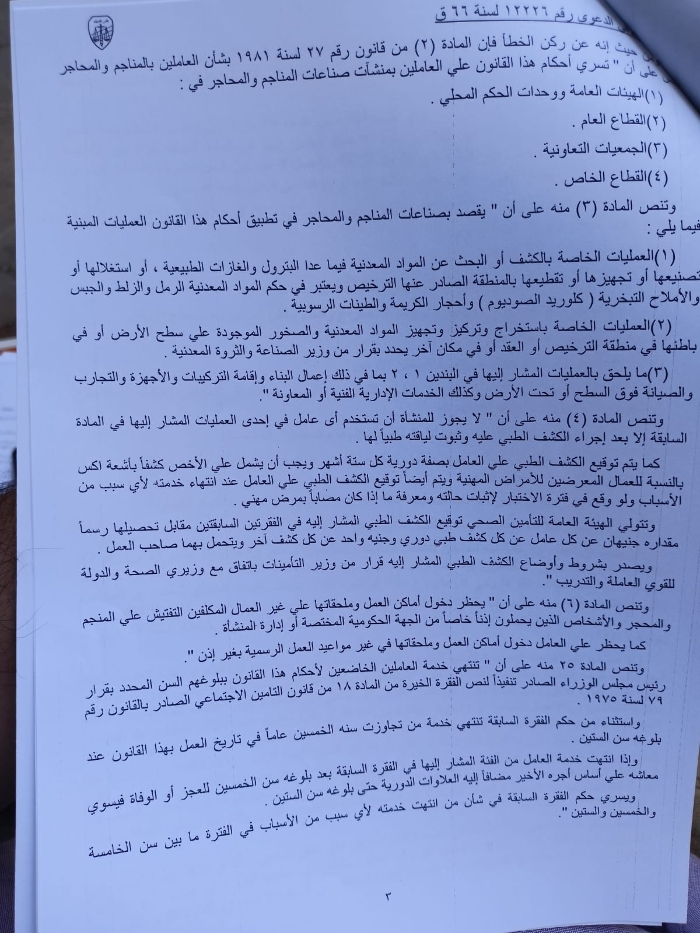 الدعوى رقم ١٢٢٢٦ لسنة ٦٦ ق
حيث إنه عن ركن الخطأ فإن المادة (٢) من قانون رقم ٢٧ لسنة ١٩٨١ بشأن العاملين بالمناجم والمحاجر
على أن " تسري أحكام هذا القانون علي العاملين بمنشآت صناعات المناجم والمحاجر في :
(١)الهيئات العامة ووحدات الحكم المحلي .
(٢)القطاع العام .
(٣)الجمعيات التعاونية .
(٤)القطاع الخاص .
وتنص المادة (٣) منه على أن " يقصد بصناعات المناجم والمحاجر في تطبيق أحكام هذا القانون العمليات المبنية
فيما يلي :
(١)العمليات الخاصة بالكشف أو البحث عن المواد المعدنية فيما عدا البترول والغازات الطبيعية ، أو استغلالها أو
تصنيعها أو تجهيزها أو تقطيعها بالمنطقة الصادر عنها الترخيص ويعتبر في حكم المواد المعدنية الرمل والزلط والجبس
والأملاح التبخرية ( كلوريد الصوديوم ) وأحجار الكريمة والطينات الرسوبية .
(٢)العمليات الخاصة باستخراج وتركيز وتجهيز المواد المعدنية والصخور الموجودة علي سطح الأرض أو في
باطنها في منطقة الترخيص أو العقد أو في مكان آخر يحدد بقرار من وزير الصناعة والثروة المعدنية .
(٣)ما يلحق بالعمليات المشار إليها في البندين ١ ، ٢ بما في ذلك إعمال البناء وإقامة التركيبات والأجهزة والتجارب
والصيانة فوق السطح أو تحت الأرض وكذلك الخدمات الإدارية الفنية أو المعاونة ".
وتنص المادة (٤) منه على أن " لا يجوز للمنشأة أن تستخدم أى عامل في إحدى العمليات المشار إليها في المادة
السابقة إلا بعد إجراء الكشف الطبي عليه وثبوت لياقته طبياً لها .
كما يتم توقيع الكشف الطبي علي العامل بصفة دورية كل ستة أشهر ويجب أن يشمل علي الأخص كشفاً بأشعة اكس
بالنسبة للعمال المعرضين للأمراض المهنية ويتم أيضاً توقيع الكشف الطبي علي العامل عند انتهاء خدمته لأي سبب من
الأسباب ولو وقع في فترة الاختبار لإثبات حالته ومعرفة ما إذا كان مصاباً بمرض مهني .
وتتولي الهيئة العامة للتأمين الصحي توقيع الكشف الطبي المشار إليه في الفقرتين السابقتين مقابل تحصيلها رسماً
مقداره جنيهان عن كل عامل عن كل كشف طبي دوري وجنيه واحد عن كل كشف آخر ويتحمل بهما صاحب العمل .
ويصدر بشروط وأوضاع الكشف الطبي المشار إليه قرار من وزير التأمينات باتفاق مع وزيري الصحة والدولة
للقوي العاملة والتدريب ".
وتنص المادة (٦) منه على أن " يحظر دخول أماكن العمل وملحقاتها علي غير العمال المكلفين التفتيش علي المنجم
والمحجر والأشخاص الذين يحملون إذناً خاصاً من الجهة الحكومية المختصة أو إدارة المنشأة .
كما يحظر علي العامل دخول أماكن العمل وملحقاتها في غير مواعيد العمل الرسمية بغير إذن ".
وتنص المادة ٢٥ منه على أن " تنتهي خدمة العاملين الخاضعين لأحكام هذا القانون ببلوغهم السن المحدد بقرار
رئيس مجلس الوزراء الصادر تنفيذاً لنص الفقرة الخيرة من المادة ١٨ من قانون التامين الاجتماعي الصادر بالقانون رقم
٧٩ لسنة ١٩٧٥ .
واستثناء من حكم الفقرة السابقة تنتهي خدمة من تجاوزت سنه الخمسين عاماً في تاريخ العمل بهذا القانون عند
بلوغه سن الستين .
وإذا انتهت خدمة العامل من الفئة المشار إليها في الفقرة السابقة بعد بلوغه سن الخمسين للعجز أو الوفاة فيسوي
معاشه علي أساس أجره الأخير مضافاً إليه العلاوات الدورية حتى بلوغه سن الستين .
ويسري حكم الفقرة السابقة في شأن من انتهت خدمته لأي سبب من الأسباب في الفترة ما بين سن الخامسة
والخمسين والستين ".
٣